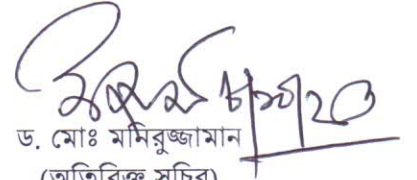 ড. মোঃ মনিরুজ্জামান
(অতিরিক্ত সচিব)